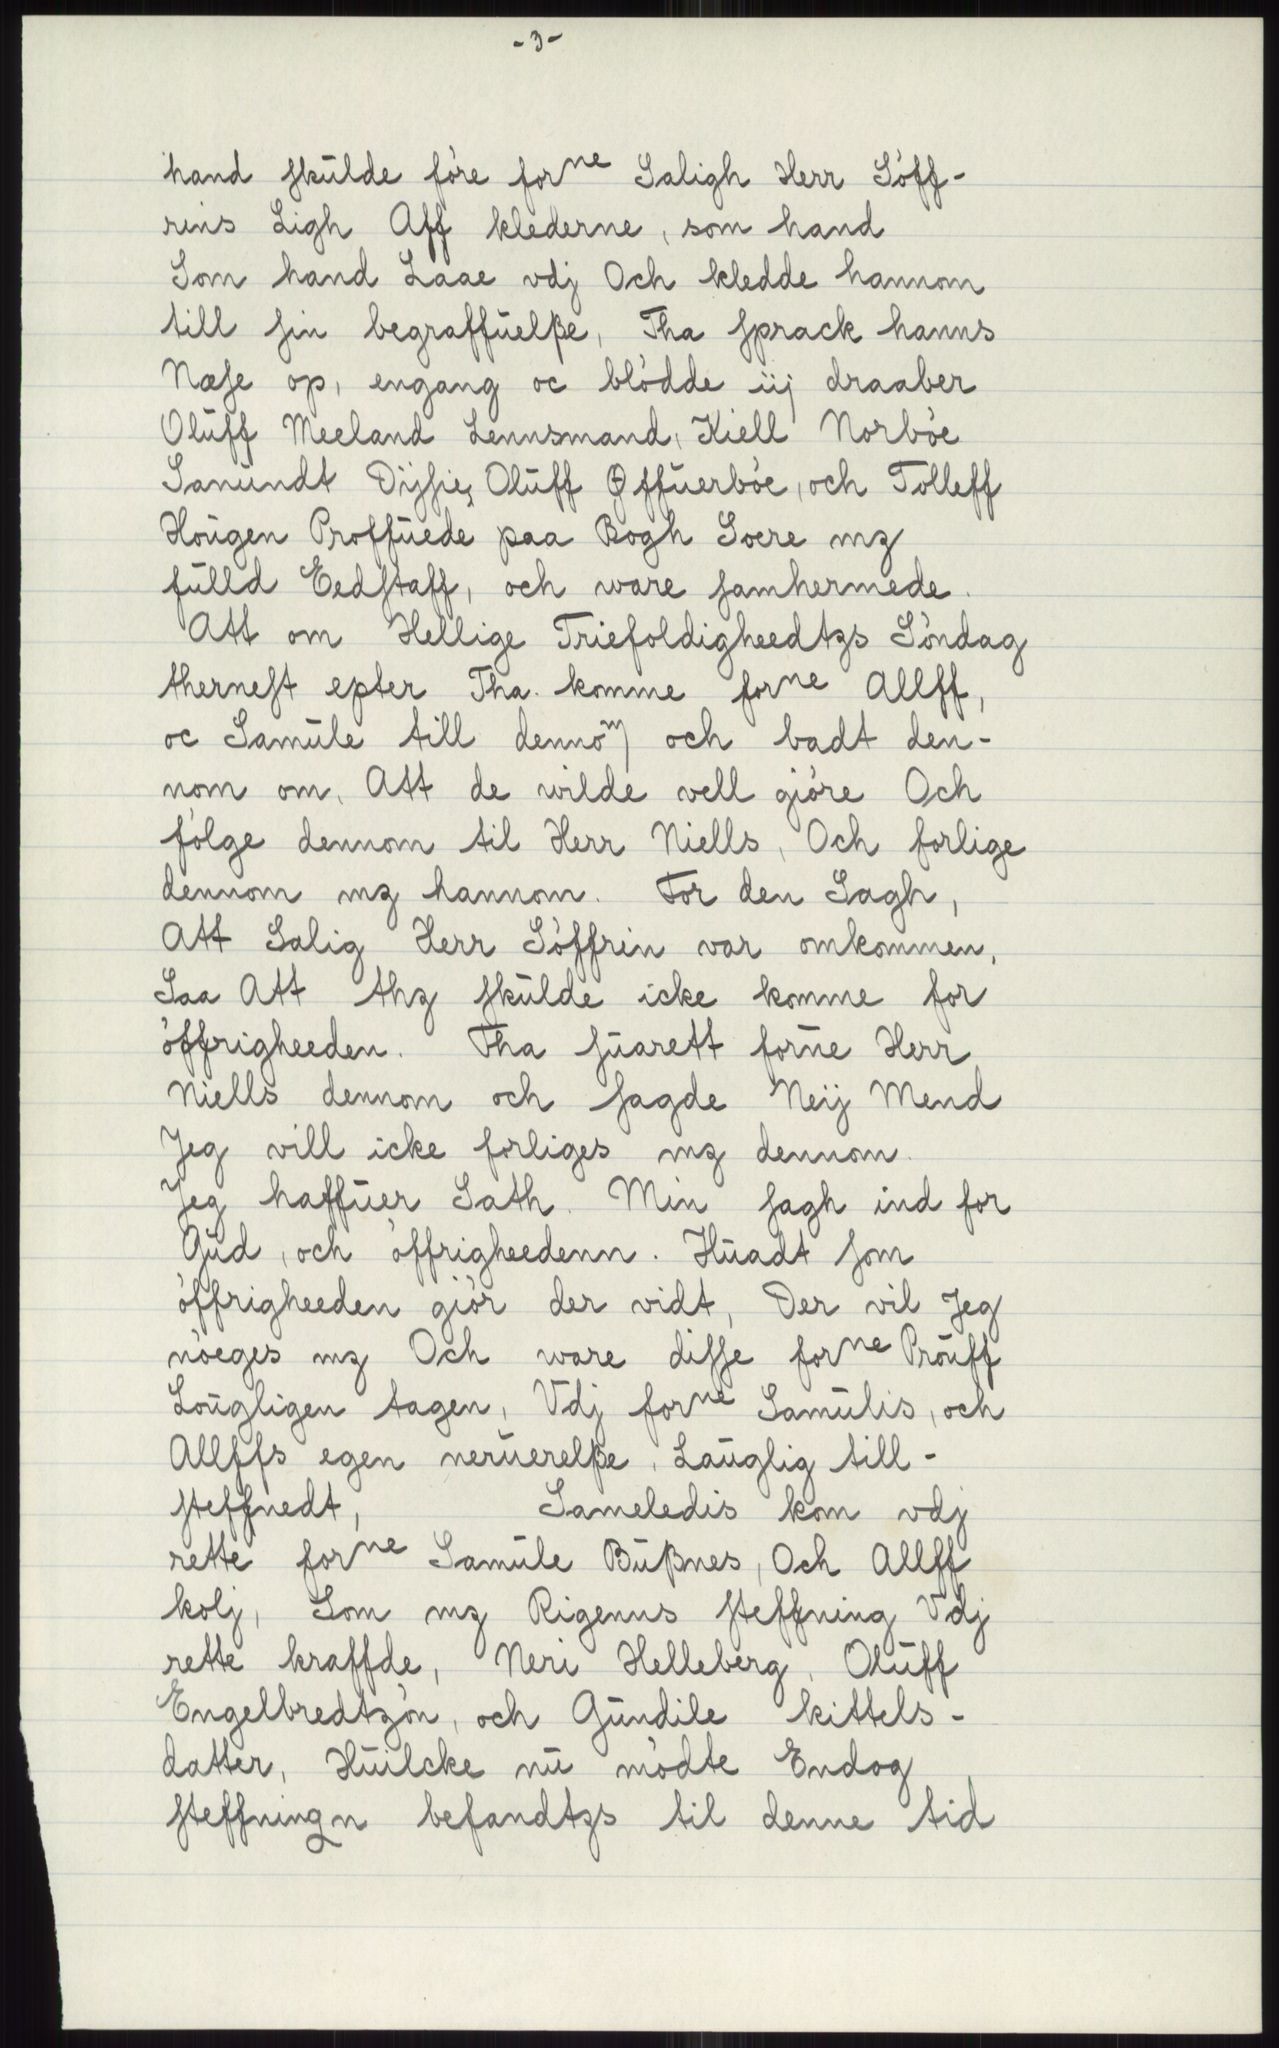 -3-
hand skulde före forne Saligh Herr Söff-
rins Ligh Aff klederne, som hand
Som hand Laae vdj Och kledde hannom
till sin begraffuelße, Tha sprack hanns
Næse op, engang oc blödde iij draaber
Oluff Meeland Lennsmand, Kiell Norböe
Sanundt Dijsie, Oluff Øffuerböe, och Tolleff
Hougen Proffuede paa Bogh Soere mz
fulld Eedstaff, och ware samhermede.
Att om Hellige Triefoldigheedtzs Söndag
thernest epter Tha komme forne Allff,
oc Samule till dennom och badt den-
nom om, Att de wilde vell giöre Och
fölge dennom til Herr Niells, Och forlige
dennom mz hannom. For den Sagh,
Att Salig Herr Söffrin var omkommen,
Saa Att thz skulde icke komme for
öffrigheeden. Tha suarett forne Herr
Niells dennom och sagde Neij Mend
Jeg vill icke forliges mz dennom.
Jeg haffuer Sath. Min sagh ind for
Gud, och öffrigheedenn. Huadt som
öffrigheeden giör der vidt, Der vil Jeg
nöeges mz Och ware disse forne Prouff
Lougligen tagen, Vdj forne Samulis, och
Allffs egen neruerelße, Lauglig till-
steffnedt, Sameledis kom vdj
rette forne Samule Bußnes, Och Allff
kolj, Som mz Rigenns steffning Vdj
rette kraffde, Neri Helleberg, Oluff
Engelbredtzön, och Gundile kittels-
datter, Huilcke nu mödte Endog
steffningn befandtzs til denne tid